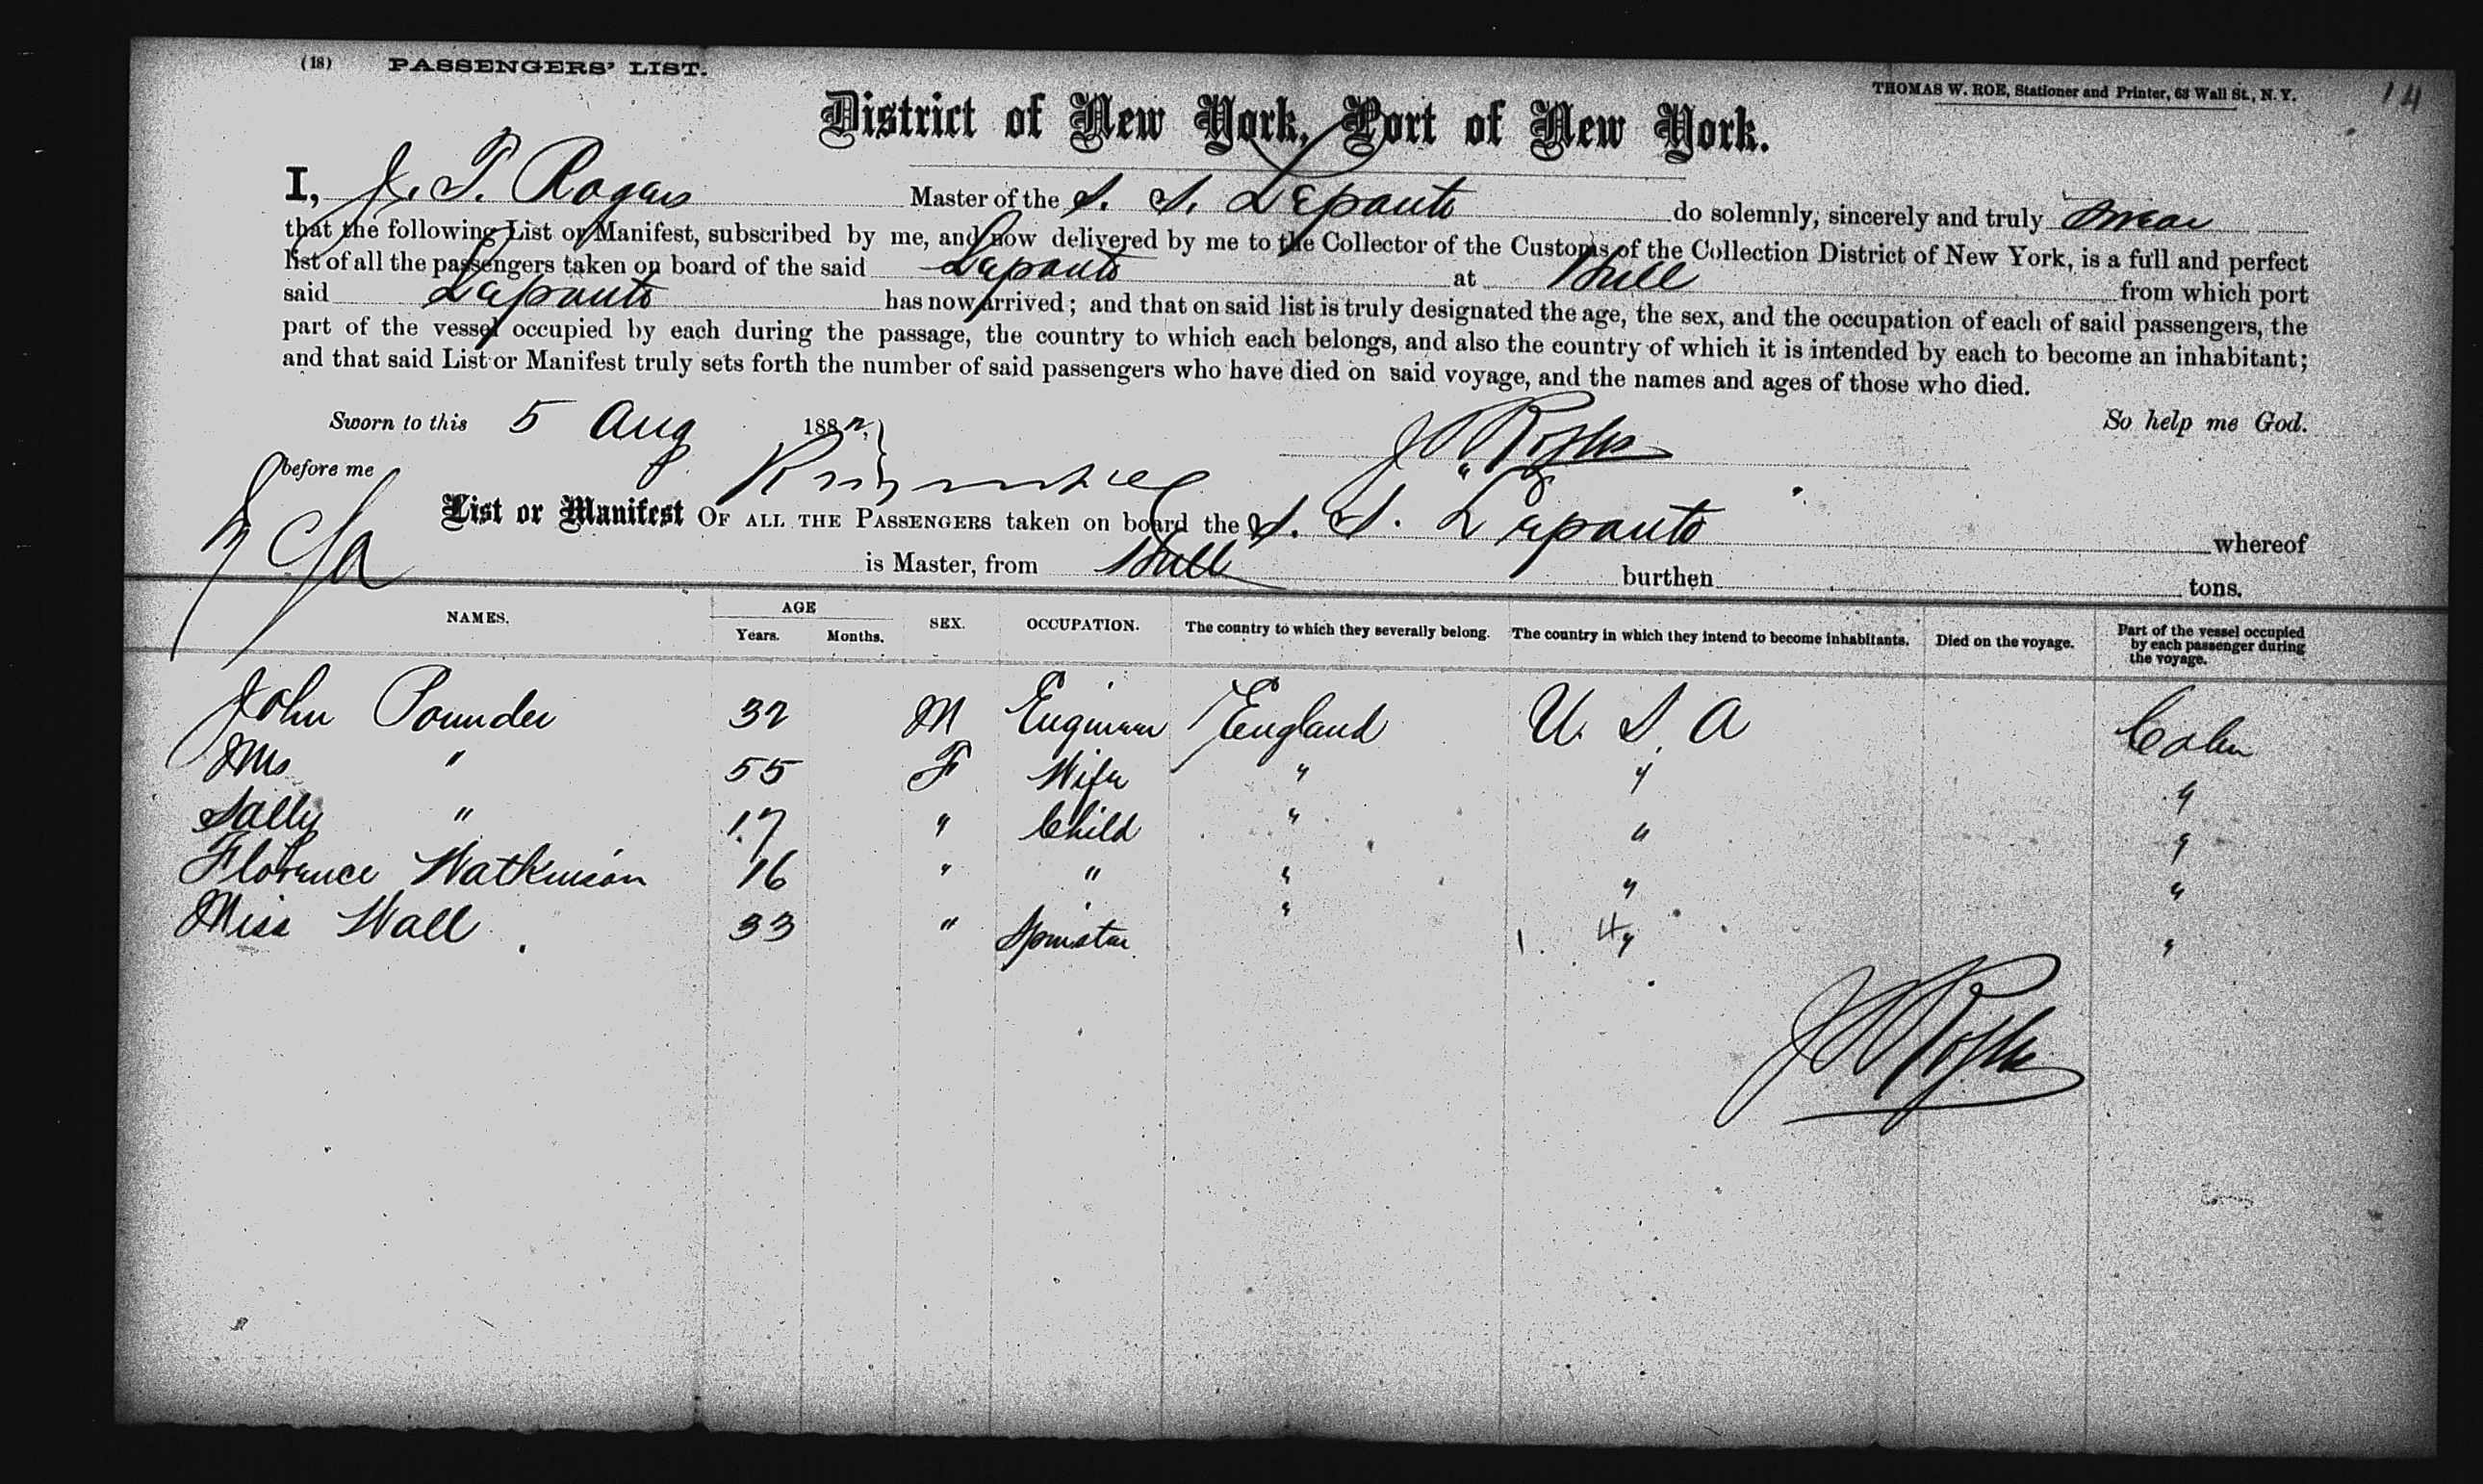 (18) PASSENGERS' LIST.
THOMAS W. ROE, Stationer and Printer, 63 Wall St., N. Y.
14
District of New York, Port of New York.
I, J. T. Rogers Master of the S. S. Lepanto do solemnly, sincerely and truly swear
that the following List or Manifest, subscribed by me, and now delivered by me to the Collector of the Customs of the Collection District of New York, is a full and perfect
list of all the passengers taken on board of the said Lepanto at Hull from which port
said Lepanto has now arrived; and that on said list is truly designated the age, the sex, and the occupation of each of said passengers, the
part of the vessel occupied by each during the passage, the country to which each belongs, and also the country of which it is intended by each to become an inhabitant;
and that said List or Manifest truly sets forth the number of said passengers who have died on said voyage, and the names and ages of those who died.
Sworn to this 5 Aug 188 So help me God.
before me
List or Manifest OF ALL THE PASSENGERS taken on board the S. S. Lepanto whereof
is Master, from Hull burthen tons.
NAMES. AGE Years. Months. SEX. OCCUPATION. The country to which they severally belong. The country in which they intend to become inhabitants. Died on the voyage. Part of the vessel occupied by each passenger during the voyage.
John Pounder 32 M Engineer England U. S. A Cabin
Mrs " 55 F Wife " " "
Sally " 17 " Child " " "
Florence Watkinson 16 " " " " "
Miss Wall 33 " Spinster " " "